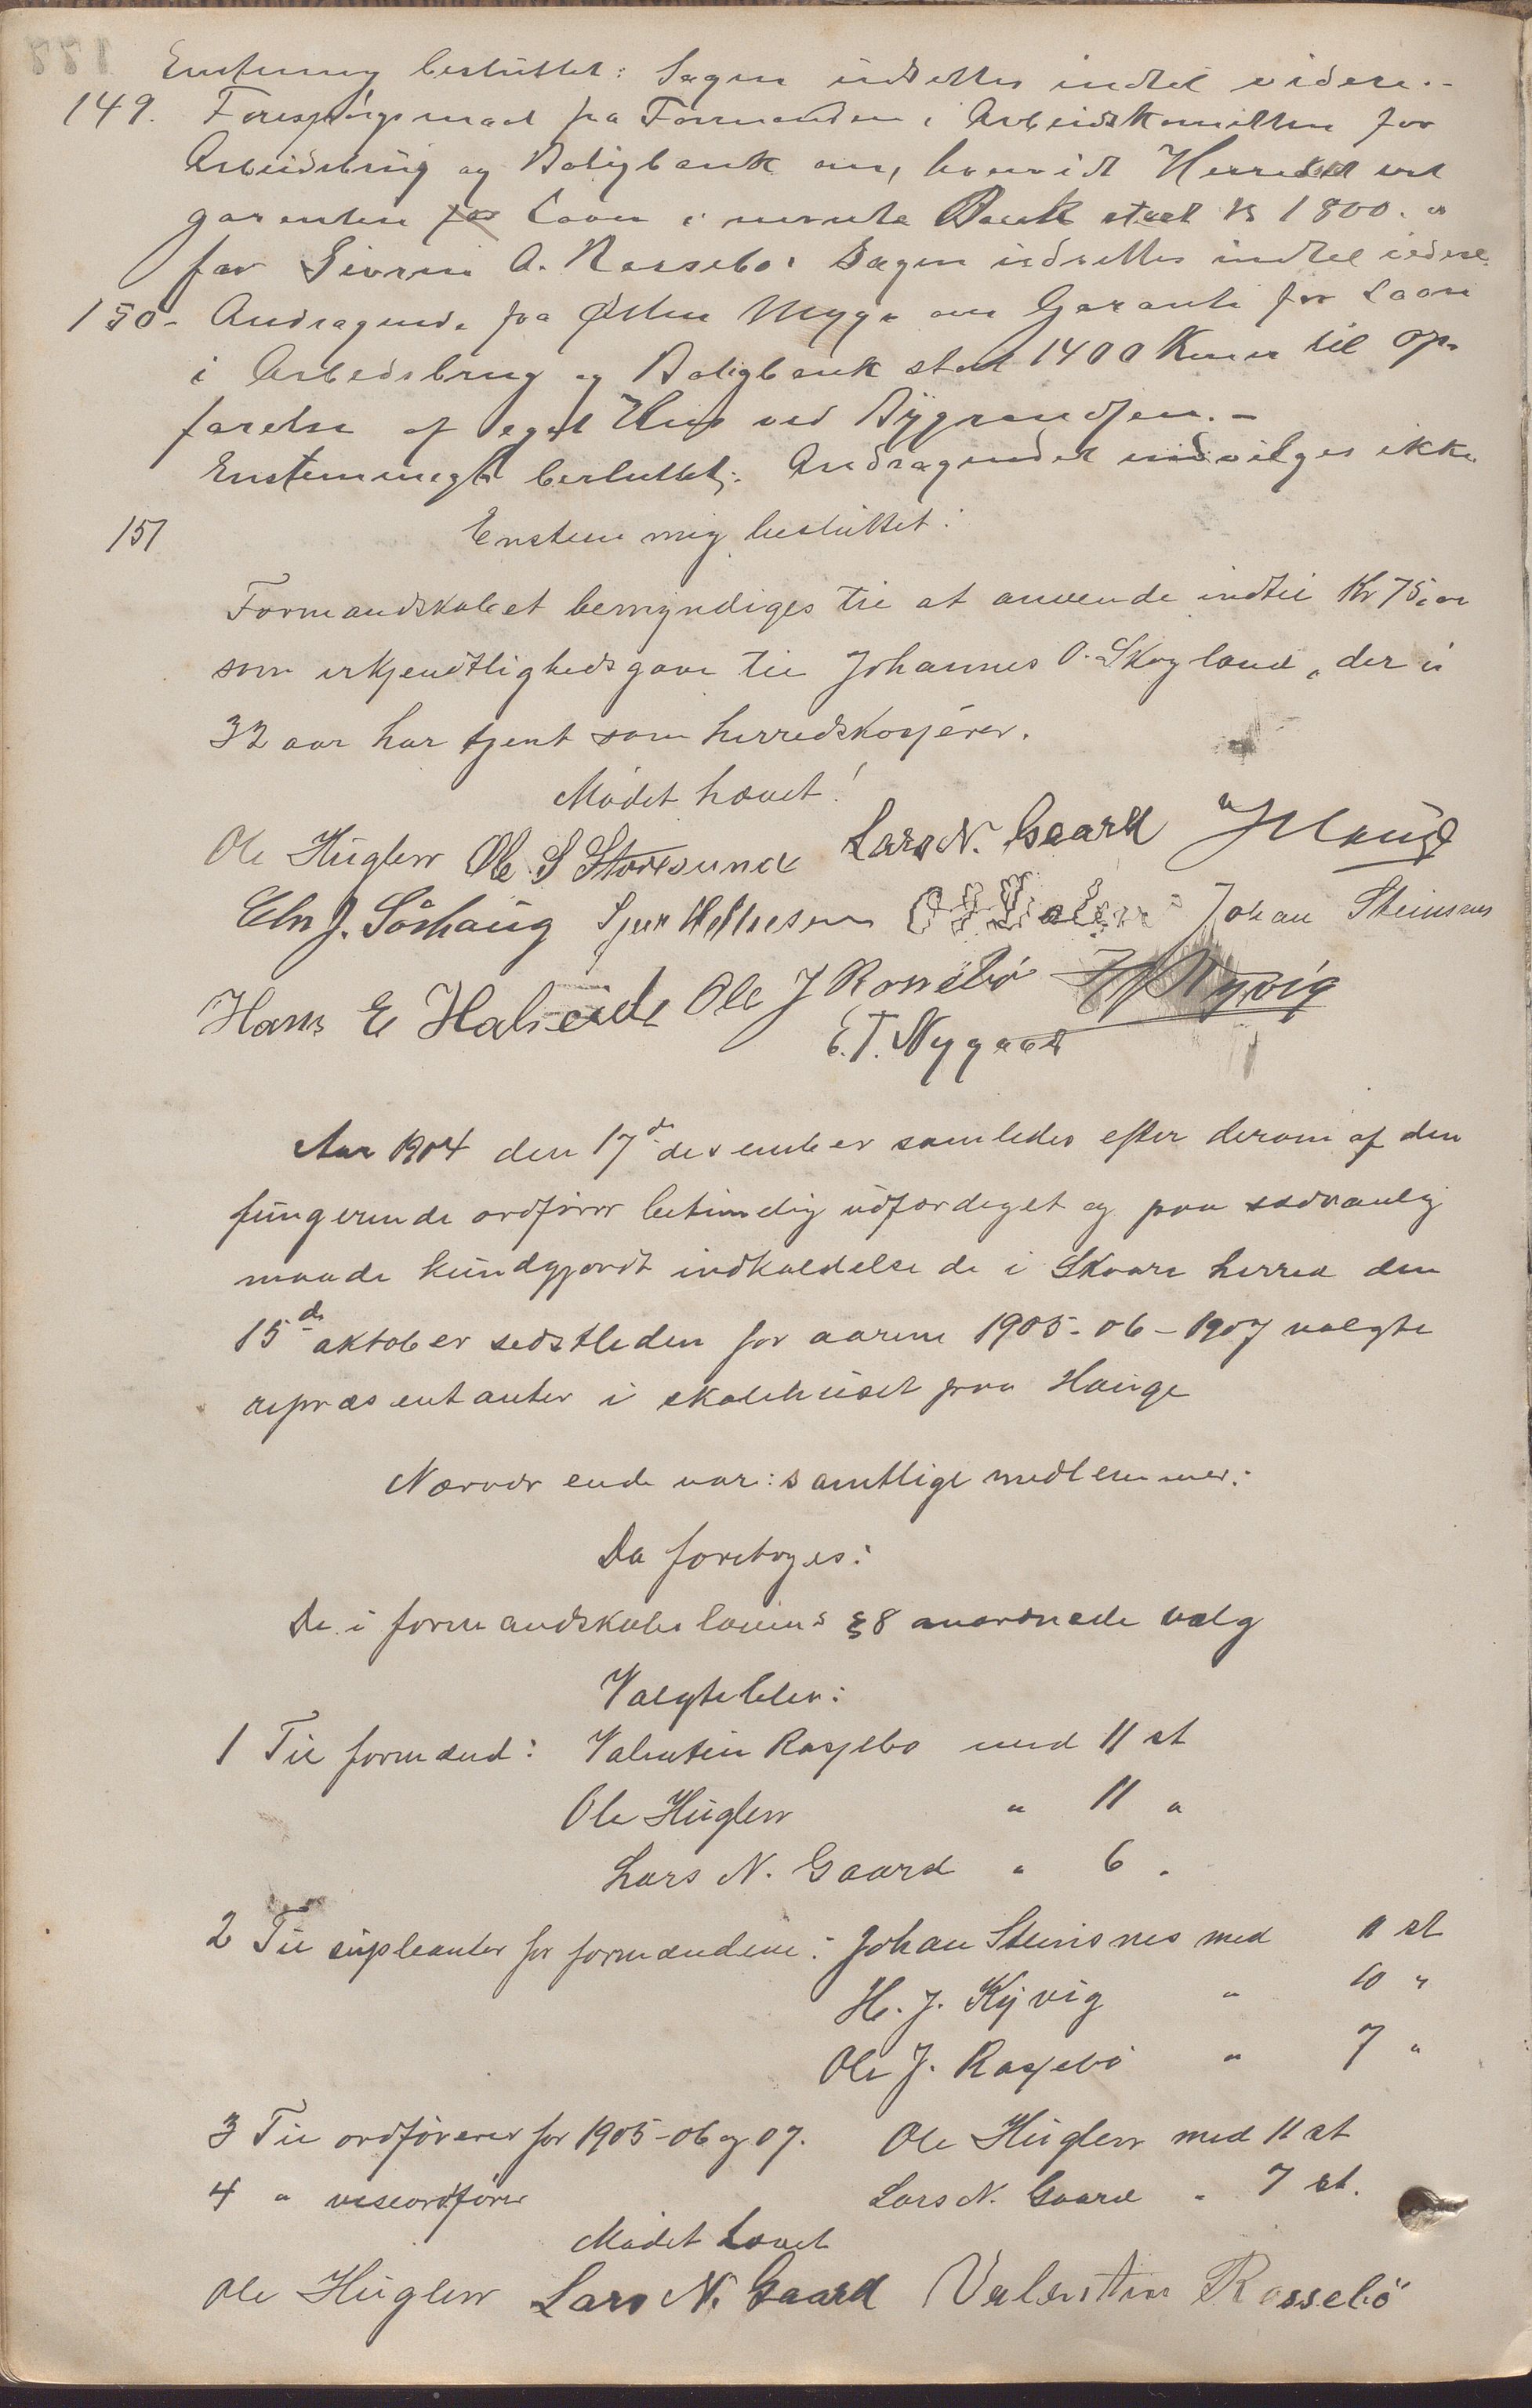 Enstemmig besluttet: Sagen udsettes indtil videre.-
149. Forespørgsmaal fra Formanden i Arbeidskomitteen for
Arbeidsbrug og Boligbank om, hvorvidt Herredet vil
garantere for Laan i nevnte Bank stort kr 1800.
for Sivrin A. Rossebø. Sagen udsettes indtil videre.
150- Andragende fra Østen Myge om Garanti for Laan
i Arbedsbrug og Boligbank stort 1400 Kroner til op-
førelse af eget Hus ved Bygrændsen.-
Enstemmigt besluttet: Andragendet indvilges ikke
151 Enstemmig besluttet:
Formandskabet bemyndiges til at anvende indtil Kr 75,00
som erkjendtlighedsgave til Johannes O. Skogland, der i
32 aar har tjent som herredskasjerer.
Mødet hævet!
Ole Hüglen Ole S Storesund Lars N. Gaard
Eln J. Sörhaüg Johan Steinsnes
Hans E Halseide Ole J Rossebö Kyvig
E. T. Nygaard
Aar 1904 den 17de desember samledes efter derom af den
fungerende ordfører betimelig udfærdiget og paa sædvanlig
maade kundgjordt indkaldelse de i Skaare herred den
15de oktober sidstleden for aarene 1905-06-1907 valgte
repræsentanter i skolehuset paa Hauge
Nærværende var: samtlige medlemmer:
Da foretoges:
De i formandskabslovens §8 anordnede valg
Valgte blev:
1 Til formænd: Valentin Rossebø med 11 st
Ole Hüglen " 11 "
Lars N. Gaard " 6 "
2 Til supleanter for formændene: Johan Steinsnes med 11 st
H. J. Kyvig " 10 "
Ole J. Rossebö " 7 "
3 Til ordfører for 1905-06 og 07. Ole Hüglen med 11 st
4 " viseordfører Lars N. Gaard " 7 st.
Mødet hævet
Ole Hüglen Lars N. Gaard Valentin Rossebö